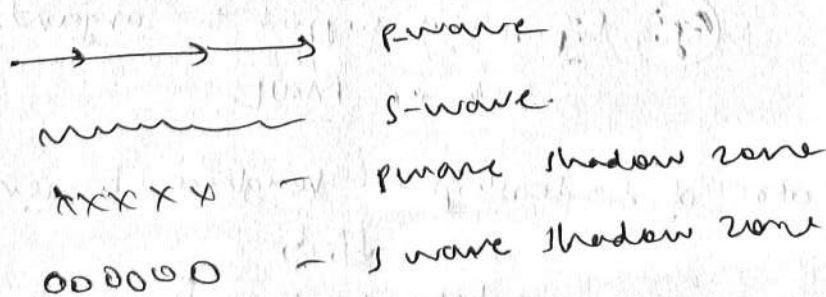 P-wave
S-wave
xxxxx - pwave shadow zone
000000 - s wave shadow zone